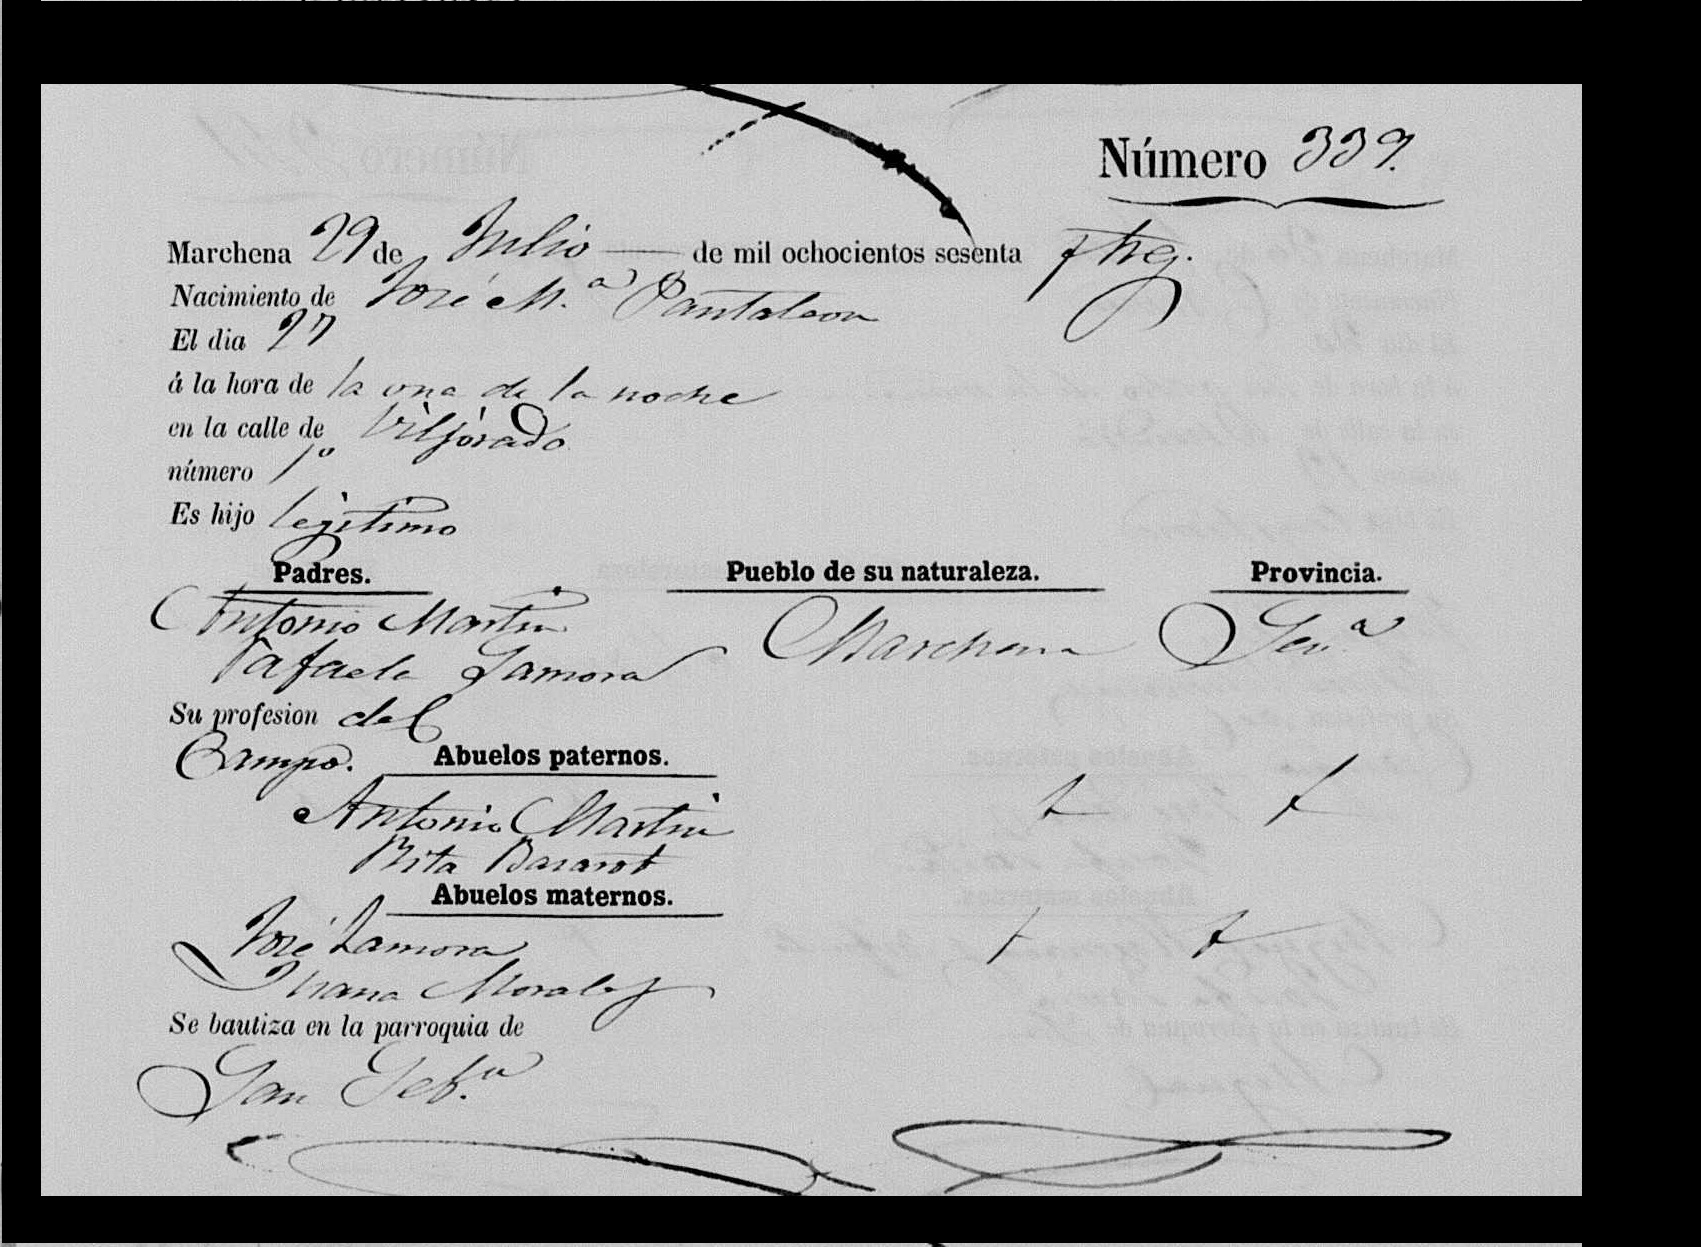 Número 339.
Marchena 29 de Julio de mil ochocientos sesenta y tres.
Nacimiento de José M.ª Pantaleon
El dia 27
á la hora de la una de la noche
en la calle de
número 1º
Es hijo legitimo
Padres. Pueblo de su naturaleza. Provincia.
Antonio Martin Marchena Sev.ª
Rafaela Zamora
Su profesion del
Campo. Abuelos paternos.
Antonio Martin
Rita
Abuelos maternos.
José Zamora
Juana Morales
Se bautiza en la parroquia de
San Seb.n